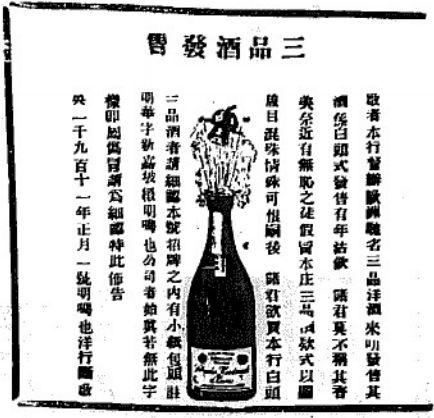 三品酒發售
敬者本行督辦歐洲馳名三品洋酒來叻發售其
酒係白頭式發售有年沽飲 諸君莫不稱其香
美奈近有無恥之徒假冒本庄三品酒款式以圖
魚目混珠情殊可恨嗣後 諸君欲買本行白頭
三品酒者請細認本號招牌之內有小紙包頭註
明華字新嘉坡積明嗎也公司者始真若無此字
樣即屬僞冒請為細認特此佈告
英一千九百十一年正月一號明嗎也洋行謹啟